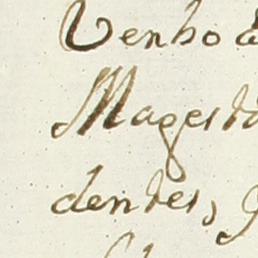 Venho a
Magesta
dentes, g